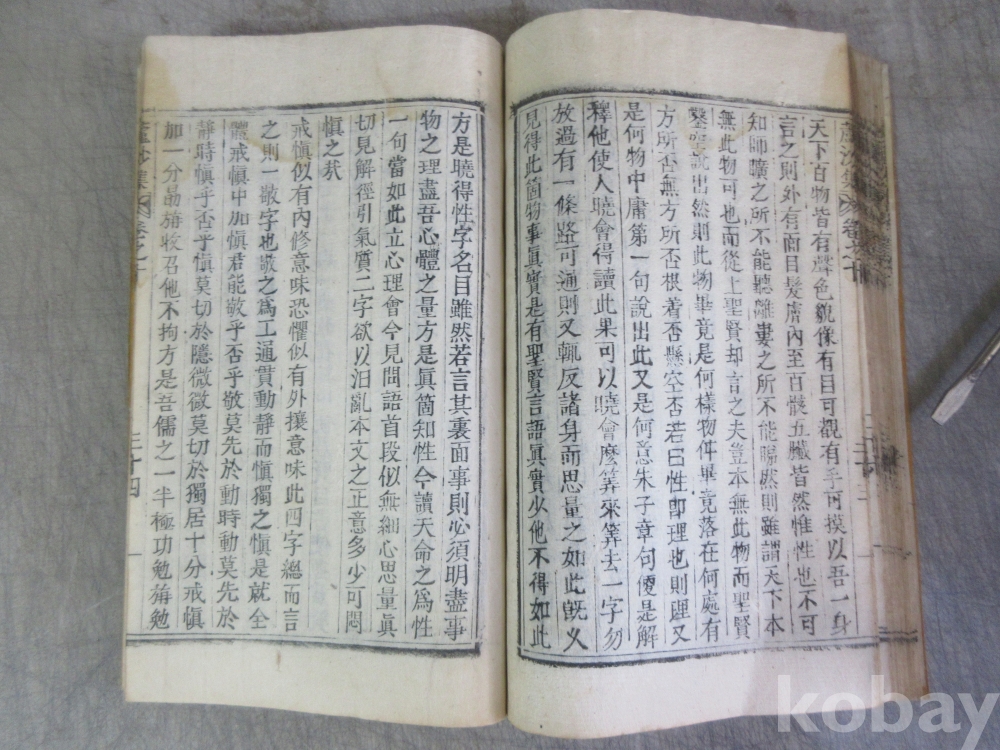 天下百物皆有聲色貌像有目可覩有手可摸以吾一身
言之則外有面目髮膚內至百骸五臟皆然惟性也不可
知師曠之所不能聽離婁之所不能睸然則雖謂天下本
無此物可也而從上聖賢却言之夫豈本無此物而聖賢
鑿空說出然則此物畢竟是何樣物件畢竟落在何處有
方所否無方所否根着否懸空否若曰性卽理也則理又
是何物中庸第一句說出此又是何意朱子章句便是解
釋他使人曉會得讀此果可以曉會麽筭來筭去一字勿
放過有一條路可通則又輒反諸身而思量之如此旣久
見得此箇物事眞實是有聖賢言語眞實少他不得如此
方是曉得性字名目雖然若言其裏面事則必須明盡事
物之理盡吾心體之量方是眞箇知性今讀天命之爲性
一句當如此立心理會今見問語首段似無細心思量眞
切見解徑引氣質二字欲以汨亂本文之正意多少可悶
愼之哉
戒愼似有內修意味恐懼似有外攘意味此四字總而言
之則一敬字也敬之爲工通貫動靜而愼獨之愼是就全
體戒愼中加愼君能敬乎否乎敬莫先於動時動莫先於
靜時愼乎否乎愼莫切於隱微微莫切於獨居十分戒愼
加一分勗猶收召他不拘方是吾儒之一半極功勉旃勉
蘆沙集 卷之十
三十四
蘆沙集 卷之十
kobay